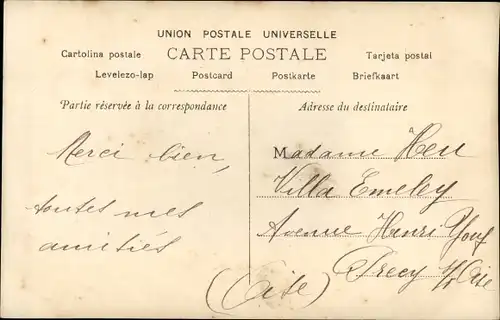 UNION POSTALE UNIVERSELLE
Cartolina postale CARTE POSTALE Tarjeta postal
Levelezo-lap Postcard Postkarte Briefkaart
Partie réservée à la correspondance
Adresse du destinataire
Merci bien,
toutes mes
amitiés
Madame
Villa Emeley
Avenue Henri
Precy s/ Oise
(Oise)